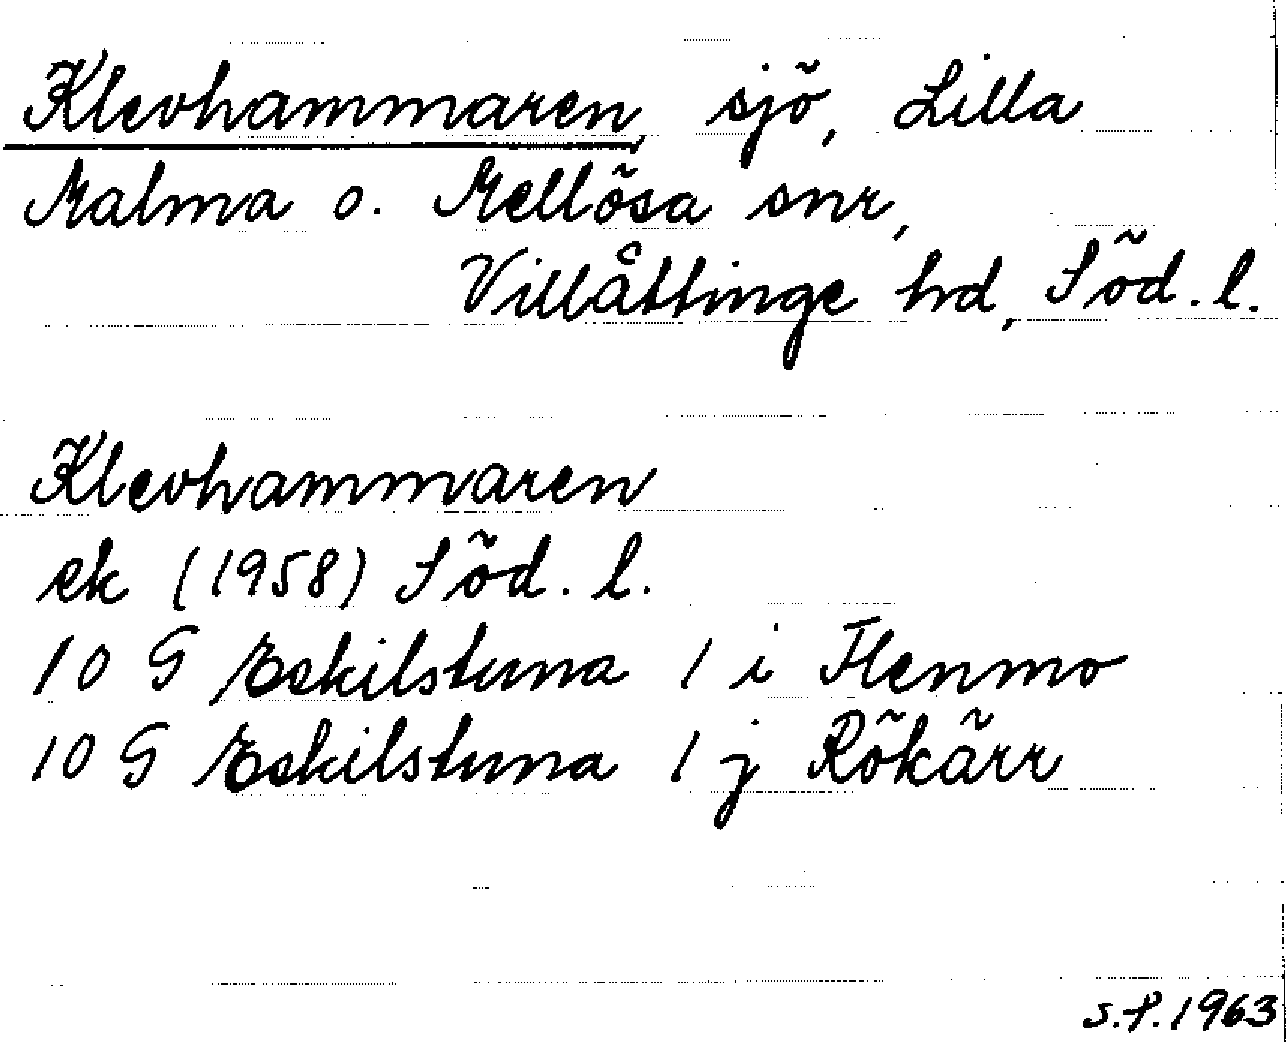 Klevhammaren, sjö, Lilla
Malma o. Mellösa snr,
Villåttinge hd, Söd. l.
Klevhammaren
ek (1958) Söd. l.
10 G Eskilstuna 1 i Flenmo
10 G Eskilstuna 1 j Rökärr
S.P. 1963